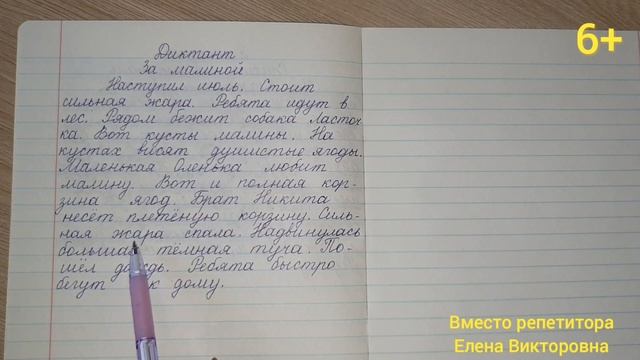 Диктант
За малиной
Наступил июль. Стоит
сильная жара. Ребята идут в
лес. Рядом бежит собака Ласточ
ка. Вот кусты малины. На
кустах висят душистые ягоды.
Маленькая Оленька любит
малину. Вот и полная кор-
зина ягод. Брат Никита
несёт плетёную корзину. Силь-
ная жара спала. Надвинулась
большая тёмная туча. По-
шёл дождь. Ребята быстро
бегут к дому.
6+
Вместо репетитора
Елена Викторовна